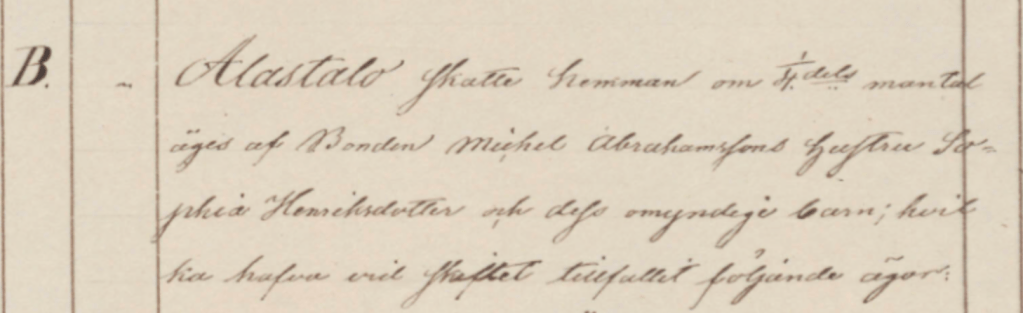 B. Alastalo skatte hemman om 1/4 dels mantal
äges af Bonden Michel Abrahamssons hustru So=
phia Henriksdotter och dess omyndige barn; hvil
ka hafva vid skiftet tillfallit följande ägor: